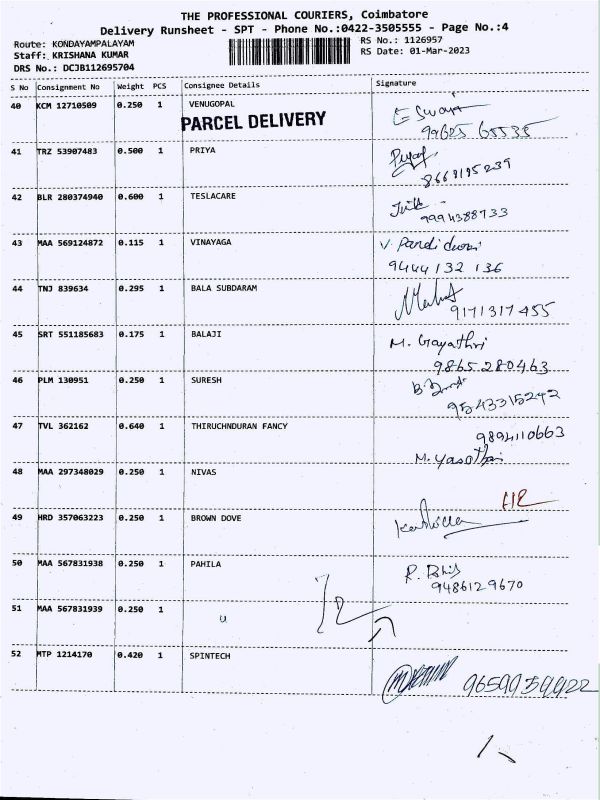 THE PROFESSIONAL COURIERS, Coimbatore
Delivery Runsheet - SPT - Phone No.:0422-3505555 - Page No.:4
Route: KONDAYAMPALAYAM
RS No.: 1126957
Staff: KRISHANA KUMAR
RS Date: 01-Mar-2023
DRS No.: DCJB112695704
S No Consignment No Weight PCS Consignee Details Signature
40 KCM 12710509 0.250 1 VENUGOPAL
PARCEL DELIVERY
41 TRZ 53907483 0.500 1 PRIYA
8669195239
42 BLR 280374940 0.600 1 TESLACARE
9994388733
43 MAA 569124872 0.115 1 VINAYAGA V. Pandi
9444132136
44 TNJ 839634 0.295 1 BALA SUBDARAM
9171317455
45 SRT 551185683 0.175 1 BALAJI M. Gayathri
9865280463
46 PLM 130951 0.250 1 SURESH
9543315242
47 TVL 362162 0.640 1 THIRUCHNDURAN FANCY 9894110663
M. Yasothai
48 MAA 297348029 0.250 1 NIVAS
49 HRD 357063223 0.250 1 BROWN DOVE
50 MAA 567831938 0.250 1 PAHILA R.
9486129670
51 MAA 567831939 0.250 1
u
52 MTP 1214170 0.420 1 SPINTECH
9659959922